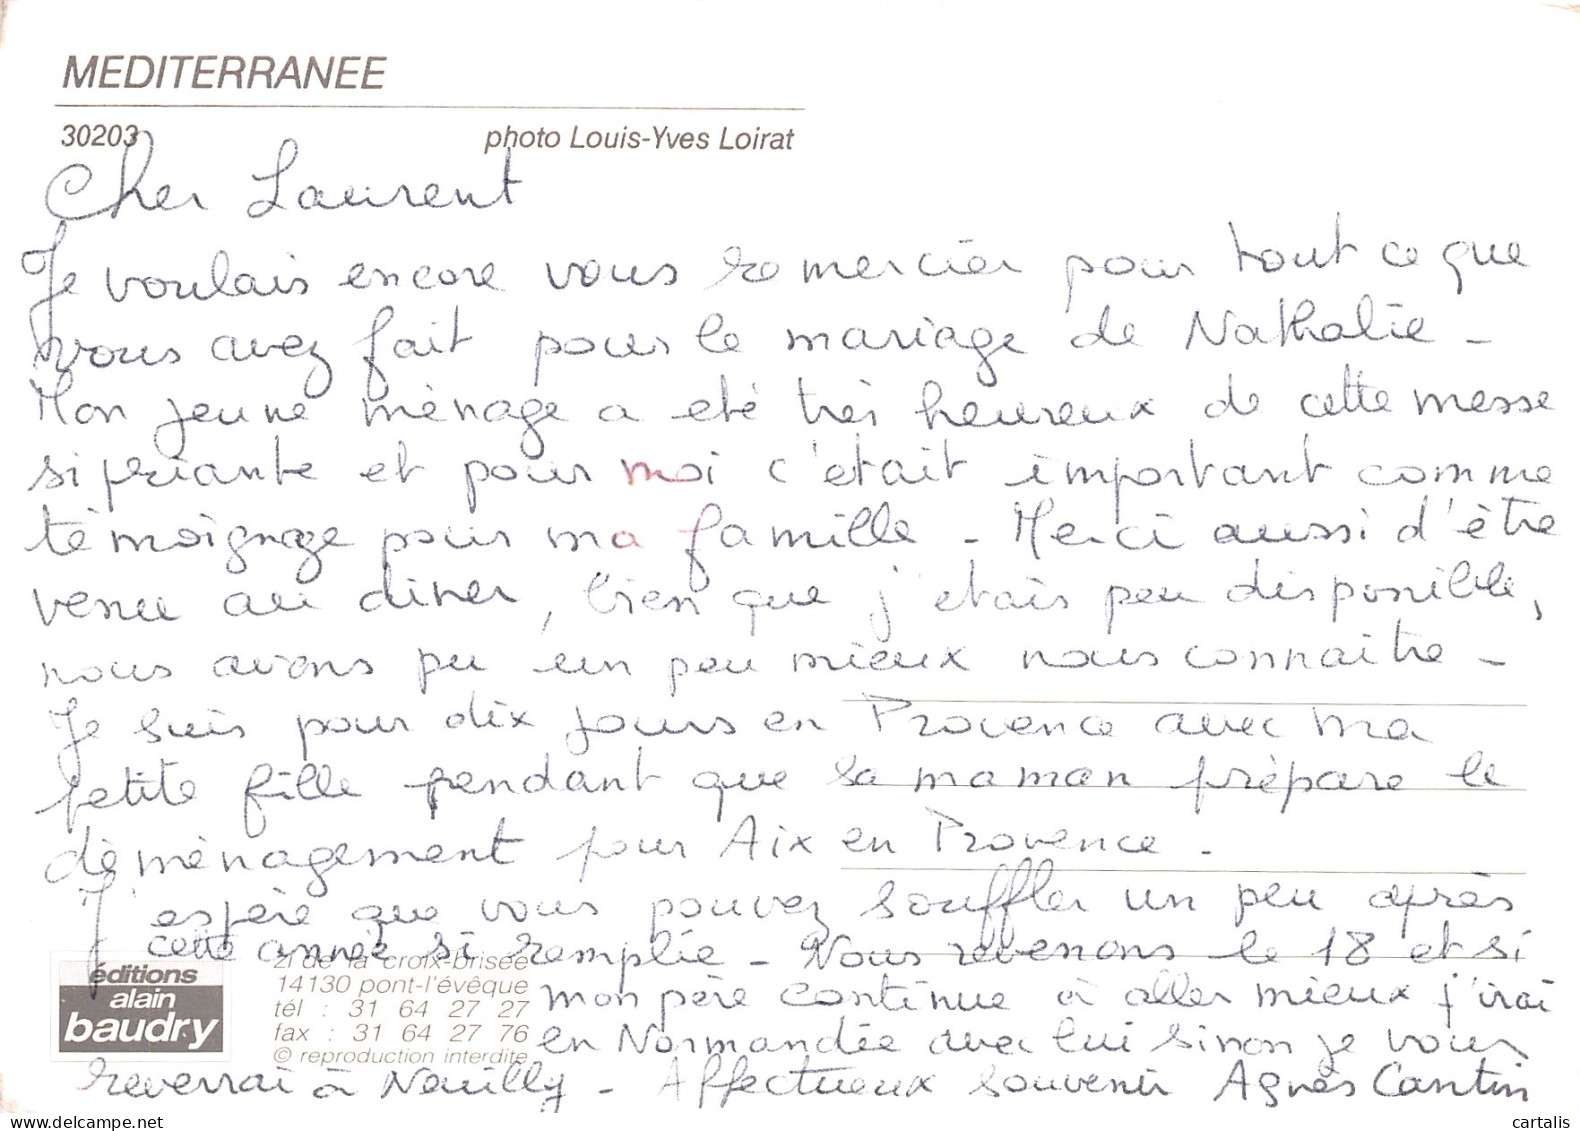 MEDITERRANEE
30203 photo Louis-Yves Loirat
Cher Laurent
Je voulais encore vous remercier pour tout ce que
vous avez fait pour le mariage de Nathalie -
Mon jeune ménage a été très heureux de cette messe
si priante et pour moi c'était important comme
témoignage pour ma famille - Merci aussi d'être
venu au diner, bien que j'étais peu disponible,
nous avons pu un peu mieux nous connaitre -
Je suis pour dix jours en Provence avec ma
petite fille pendant que sa maman prépare le
déménagement pour Aix en Provence -
J'espère que vous pouvez souffler un peu après
cette année si remplie - Nous revenons le 18 et si
mon père continue à aller mieux j'irai
en Normandie avec lui sinon je vous
reverrai à Neuilly - Affectueux souvenir Agnès Cantin
éditions
alain
baudry
21 de la croix-brisée
14130 pont-l'évêque
tél : 31 64 27 27
fax : 31 64 27 76
© reproduction interdite
www.delcampe.net
cartalis